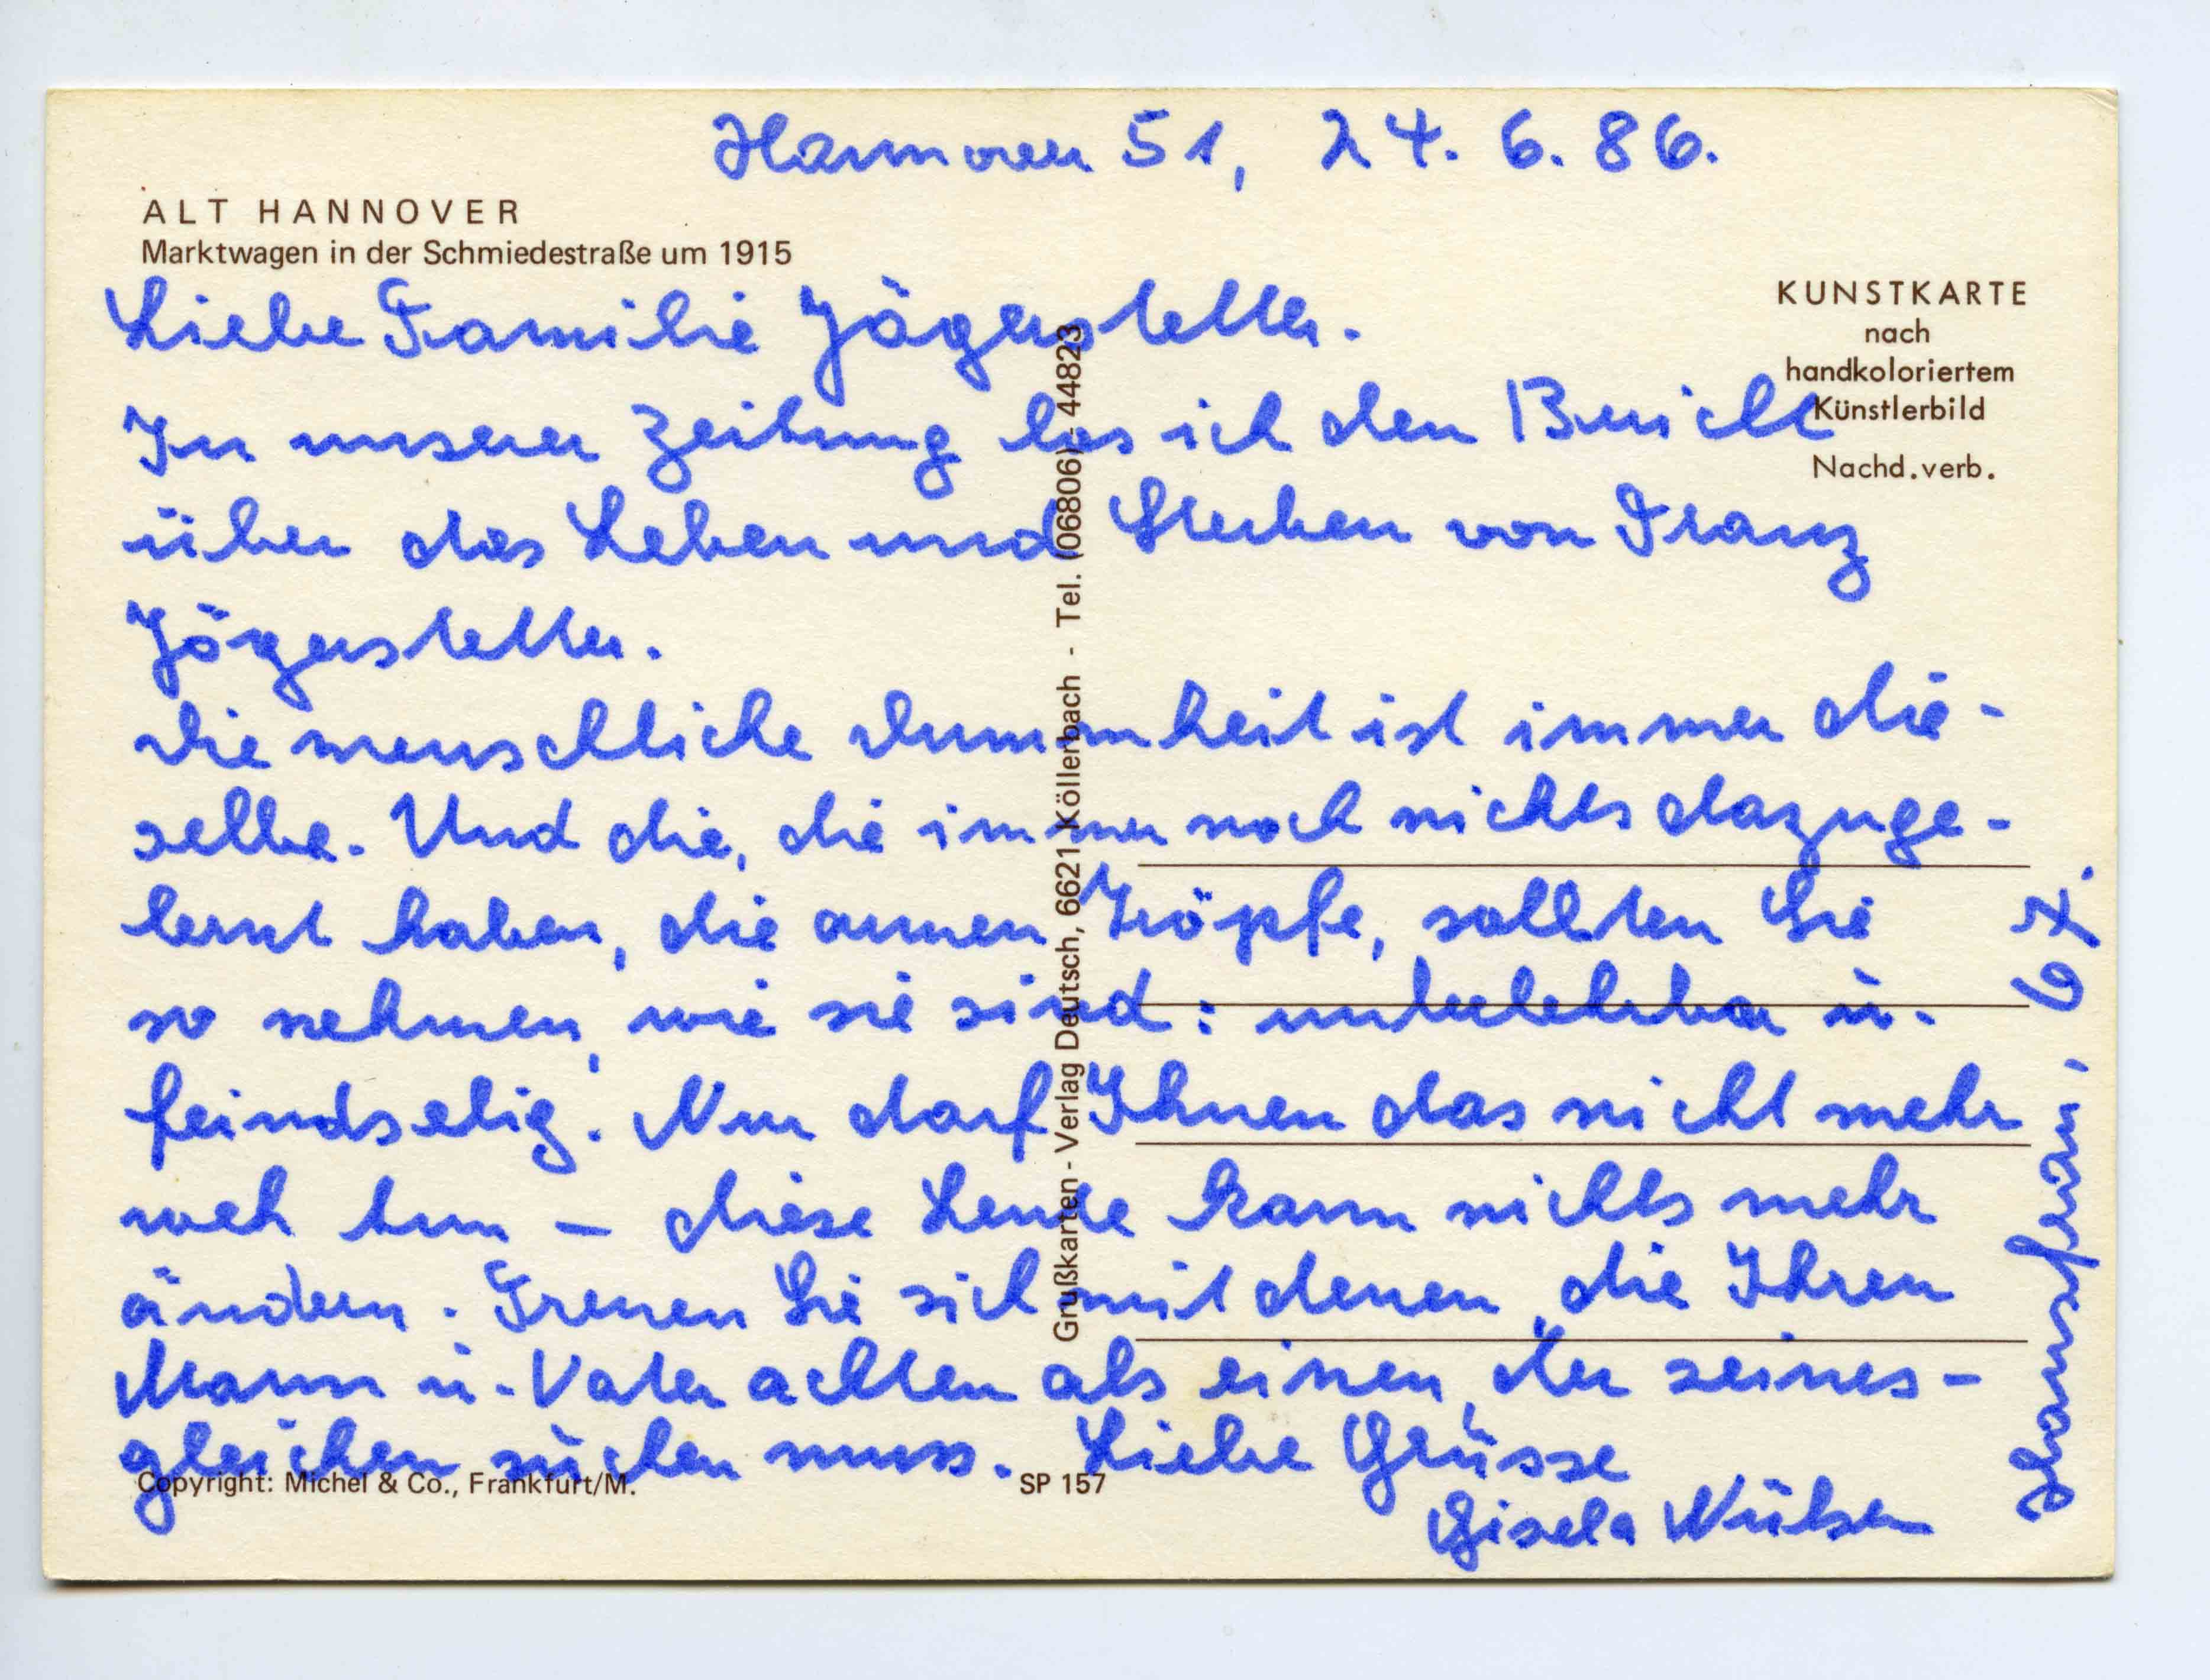 Hannover 51, 24. 6. 86.
ALT HANNOVER
Marktwagen in der Schmiedestraße um 1915
KUNSTKARTE
nach
handkoloriertem
Künstlerbild
Nachd.verb.
Liebe Familie Jägerstetter.
In unserer Zeitung las ich den Bericht
über das Leben und Sterben von Franz
Jägerstetter.
Die menschliche Dummheit ist immer die-
selbe. Und die, die immer noch nichts dazuge-
lernt haben, die armen Tröpfe, sollten Sie
so nehmen, wie sie sind: unbelehrbar u.
feindselig. Nur darf Ihnen das nicht mehr
weh tun – diese Leute kann nichts mehr
ändern. Freuen Sie sich mit denen, die Ihren
Mann u. Vater achten als einen, der seines-
gleichen suchen muss. Liebe Grüsse
Gisela
Hausfrau, 67.
Grußkarten - Verlag Deutsch, 6621 Köllerbach - Tel. (06806) - 44823
Copyright: Michel & Co., Frankfurt/M.
SP 157